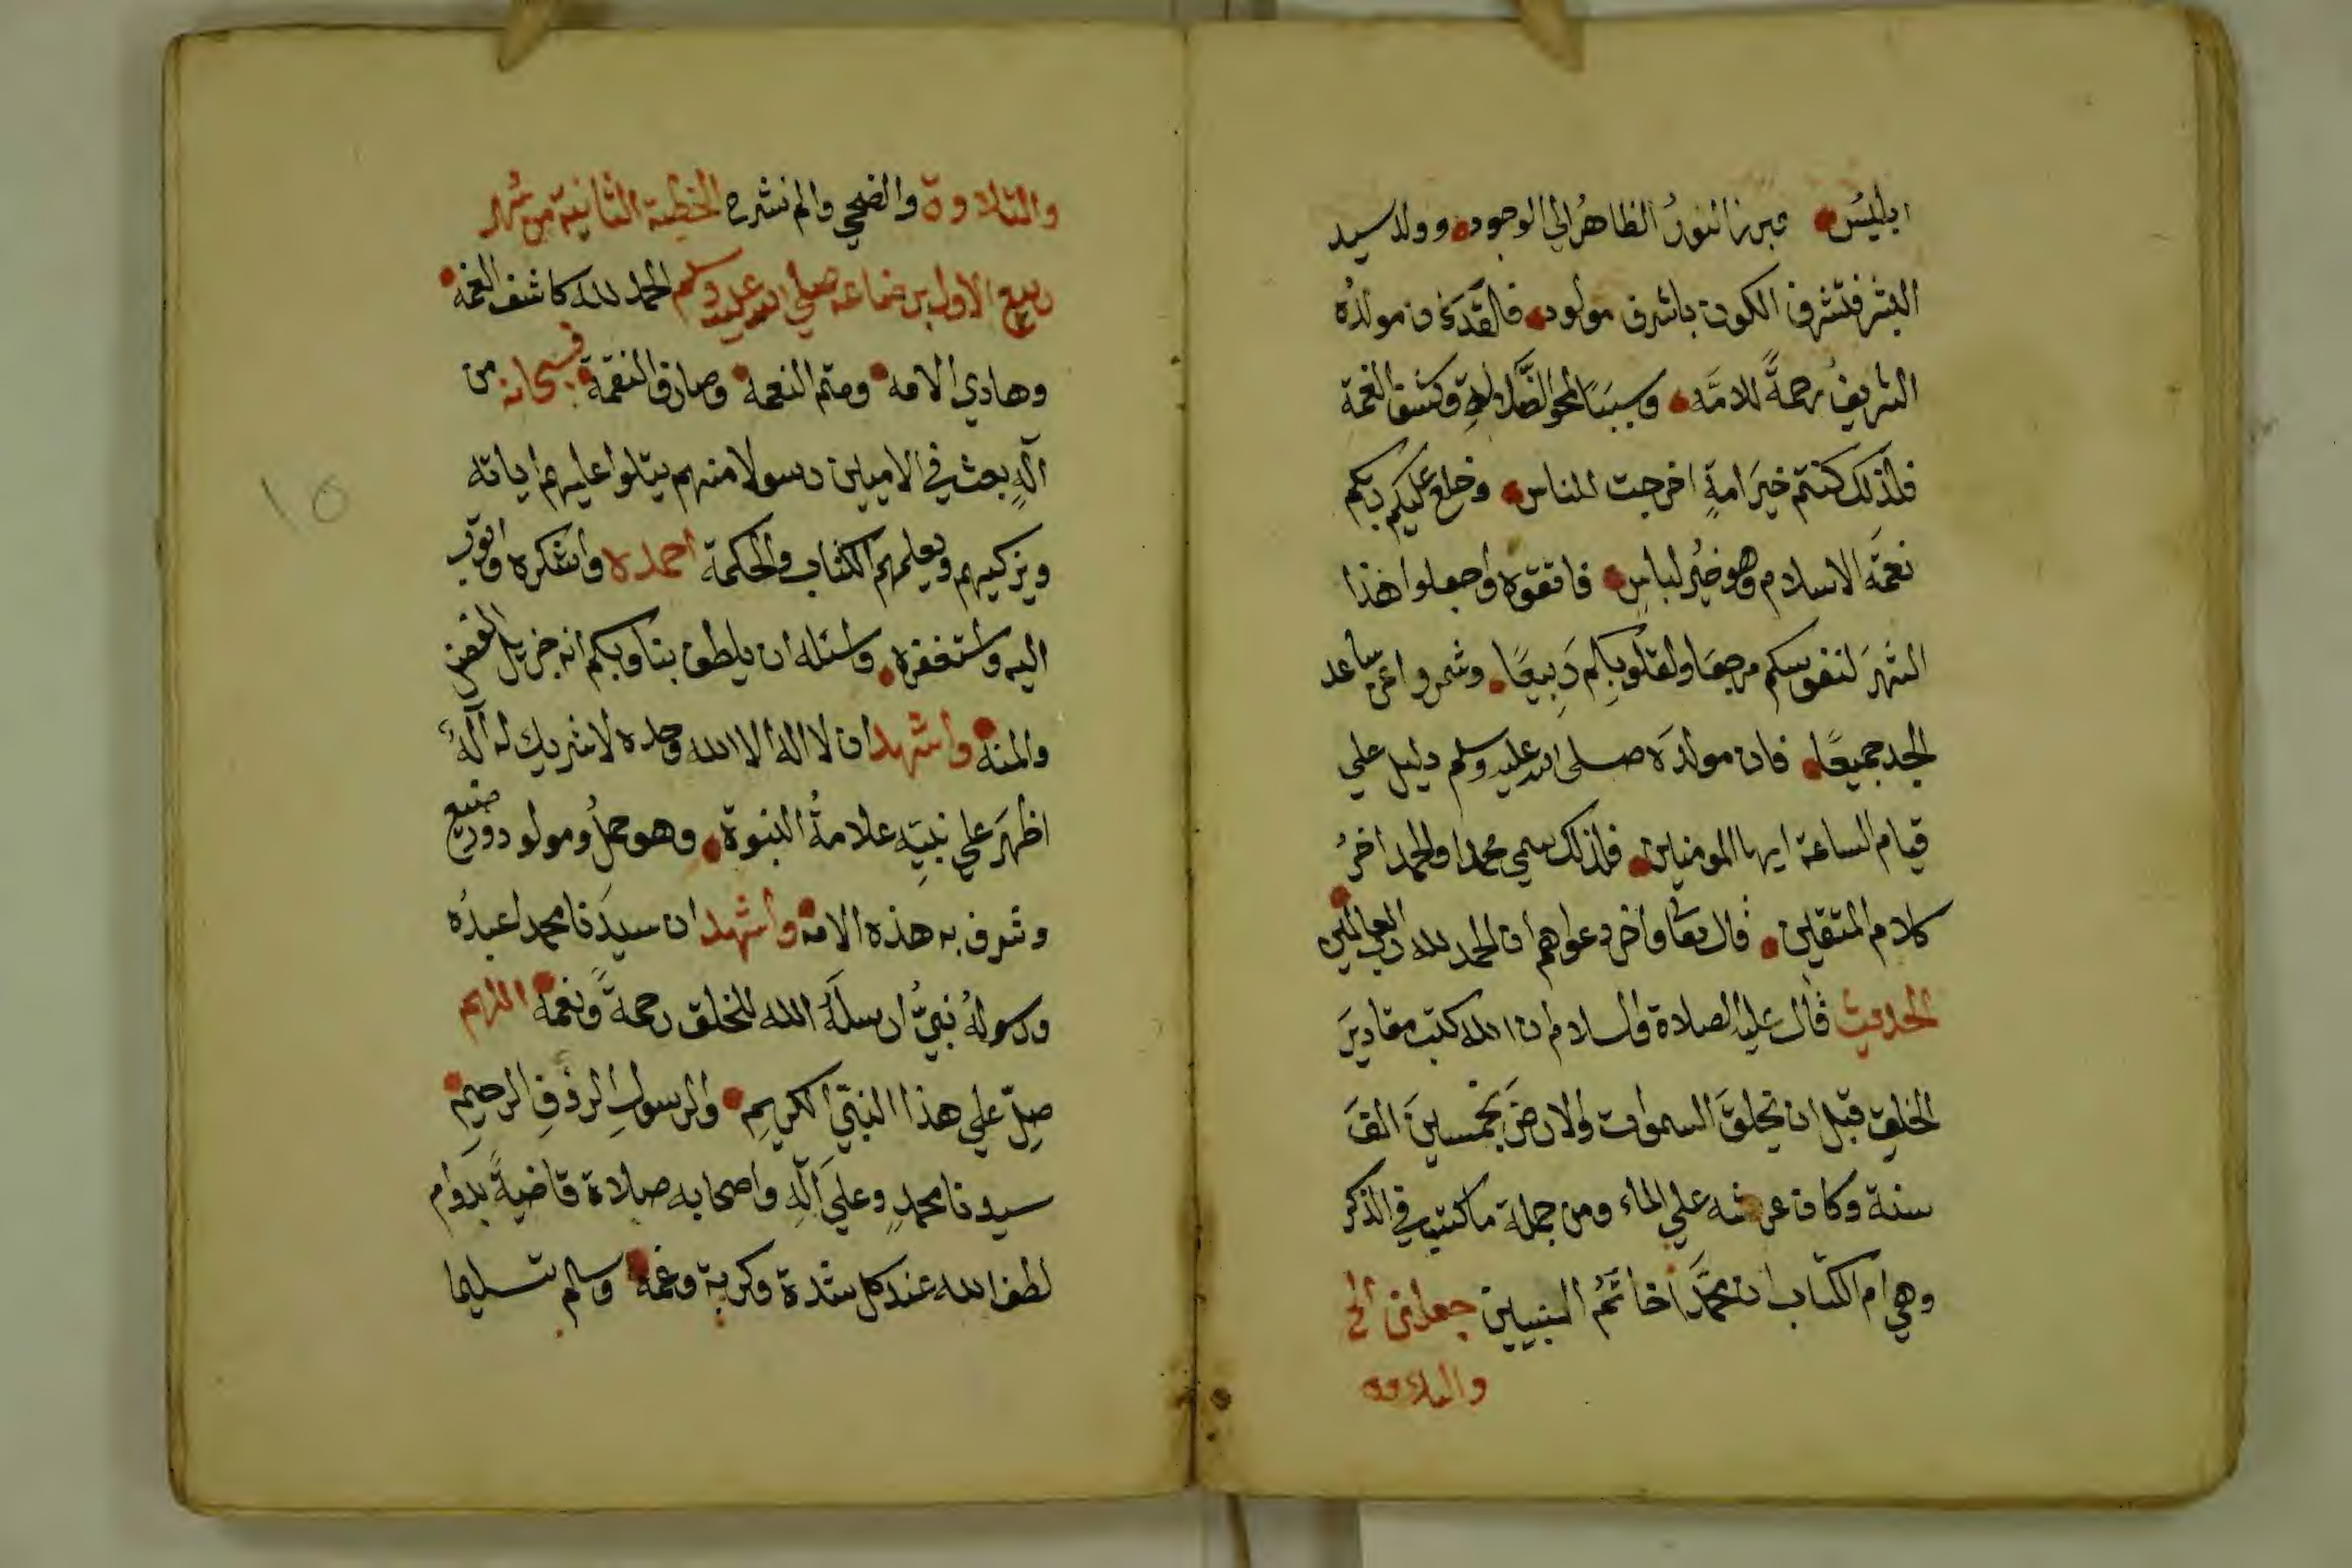 ابليسُ فبرز النورُ الظاهرُ الي الوجود وولد سيد
البشر فتشرف الكون باشرف مولود فالقد كان مولدُه
الشريفُ رحمةً للامَّه وسببًا لمحو الضَّلالةِ وكشف الغمة
فلذلك كنتم خيرَ امةٍ اخرجت للناس وخلع عليكم ربكم
نعمَة الاسلام وهو خيرُ لباسٍ فاتقوه واجعلوا هذا
الشهرَ لنفوسكم مرجعا ولقلوبِكم رَبيعًا وشمروا عن ساعد
الجد جميعًا فان مولدَه صلى الله عليه وسلم دليل علي
قيام الساعة ايها المومنين فلذلك سمي محمدا والحمد اخرُ
كلام المتقين قال تعا واخر دعواهم ان الحمد لله رب العالمين
الحديث قال عليه الصلاة والسلام ان الله كتب مقاديرَ
الخلقِ قبل ان يخلقَ السموات والارضَ بخمسينَ الفَ
سنة وكان عرشه علي الماء ومن جملة ما كتب في الذكر
وهي ام الكتاب ان محمَّدًا خاتَمُ النبيين جعلني الخ
والتلاوة
والتلاوة والضحي والم نشرح الخطبة الثانية من شهر
ربيع الاول برضاعه صلي الله عليه وسلم الحمد لله كاشف الغمه
وهادي الامه ومتم النعمه وصارف النقمة فسبحانه من
الَهٍ بعث في الاميين رسولا منهم يتلوا عليهم اياته
ويزكيهم ويعلمهم الكتاب والحكمة احمده واشكره واتوب
اليه واستغفره واسئله ان يلطف بنا وبكم انه جزيل الفضل
والمنه واشهد ان لا اله الا الله وحده لا شريك له الَهٌ
اظهرَ علي نبيِّه علامةُ النبوة وهو حملٌ ومولود ورضيع
وشرف به هذه الامه واشهد ان سيدَنا محمدا عبدُه
ورسولُه نبيٌ ارسلَهُ الله للخلق رحمةً ونعمة اللهم
صلِّ علي هذا النبيّ الكريمِ والرسولِ الرؤفِ الرحيمِ
سيدنا محمدٍ وعلَي آلهِ واصحابه صلاة قاضيةً بدوام
لطف الله عند كل شدة وكربة وغمه وسلم تسليما
١٥